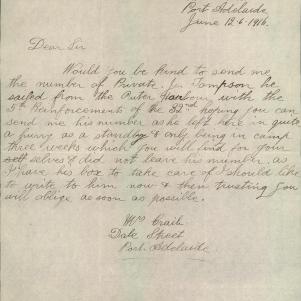 Port Adelaide
June 12.6.1916.
Dear Sir
Would you be kind to send me
the number of Private J. Sampson he
sailed from the Outer Harbour with the
5th Reinforcements of the 32nd hoping you can
send me his number as he left here in quite
a hurry as a standby & only being in camp
three weeks which you will find for your
selves & did not leave his number. as
I have his box to take care of I should like
to write to him now & then trusting you
will oblige as soon as possible.
Mrs Craib
Dale Street
Port Adelaide